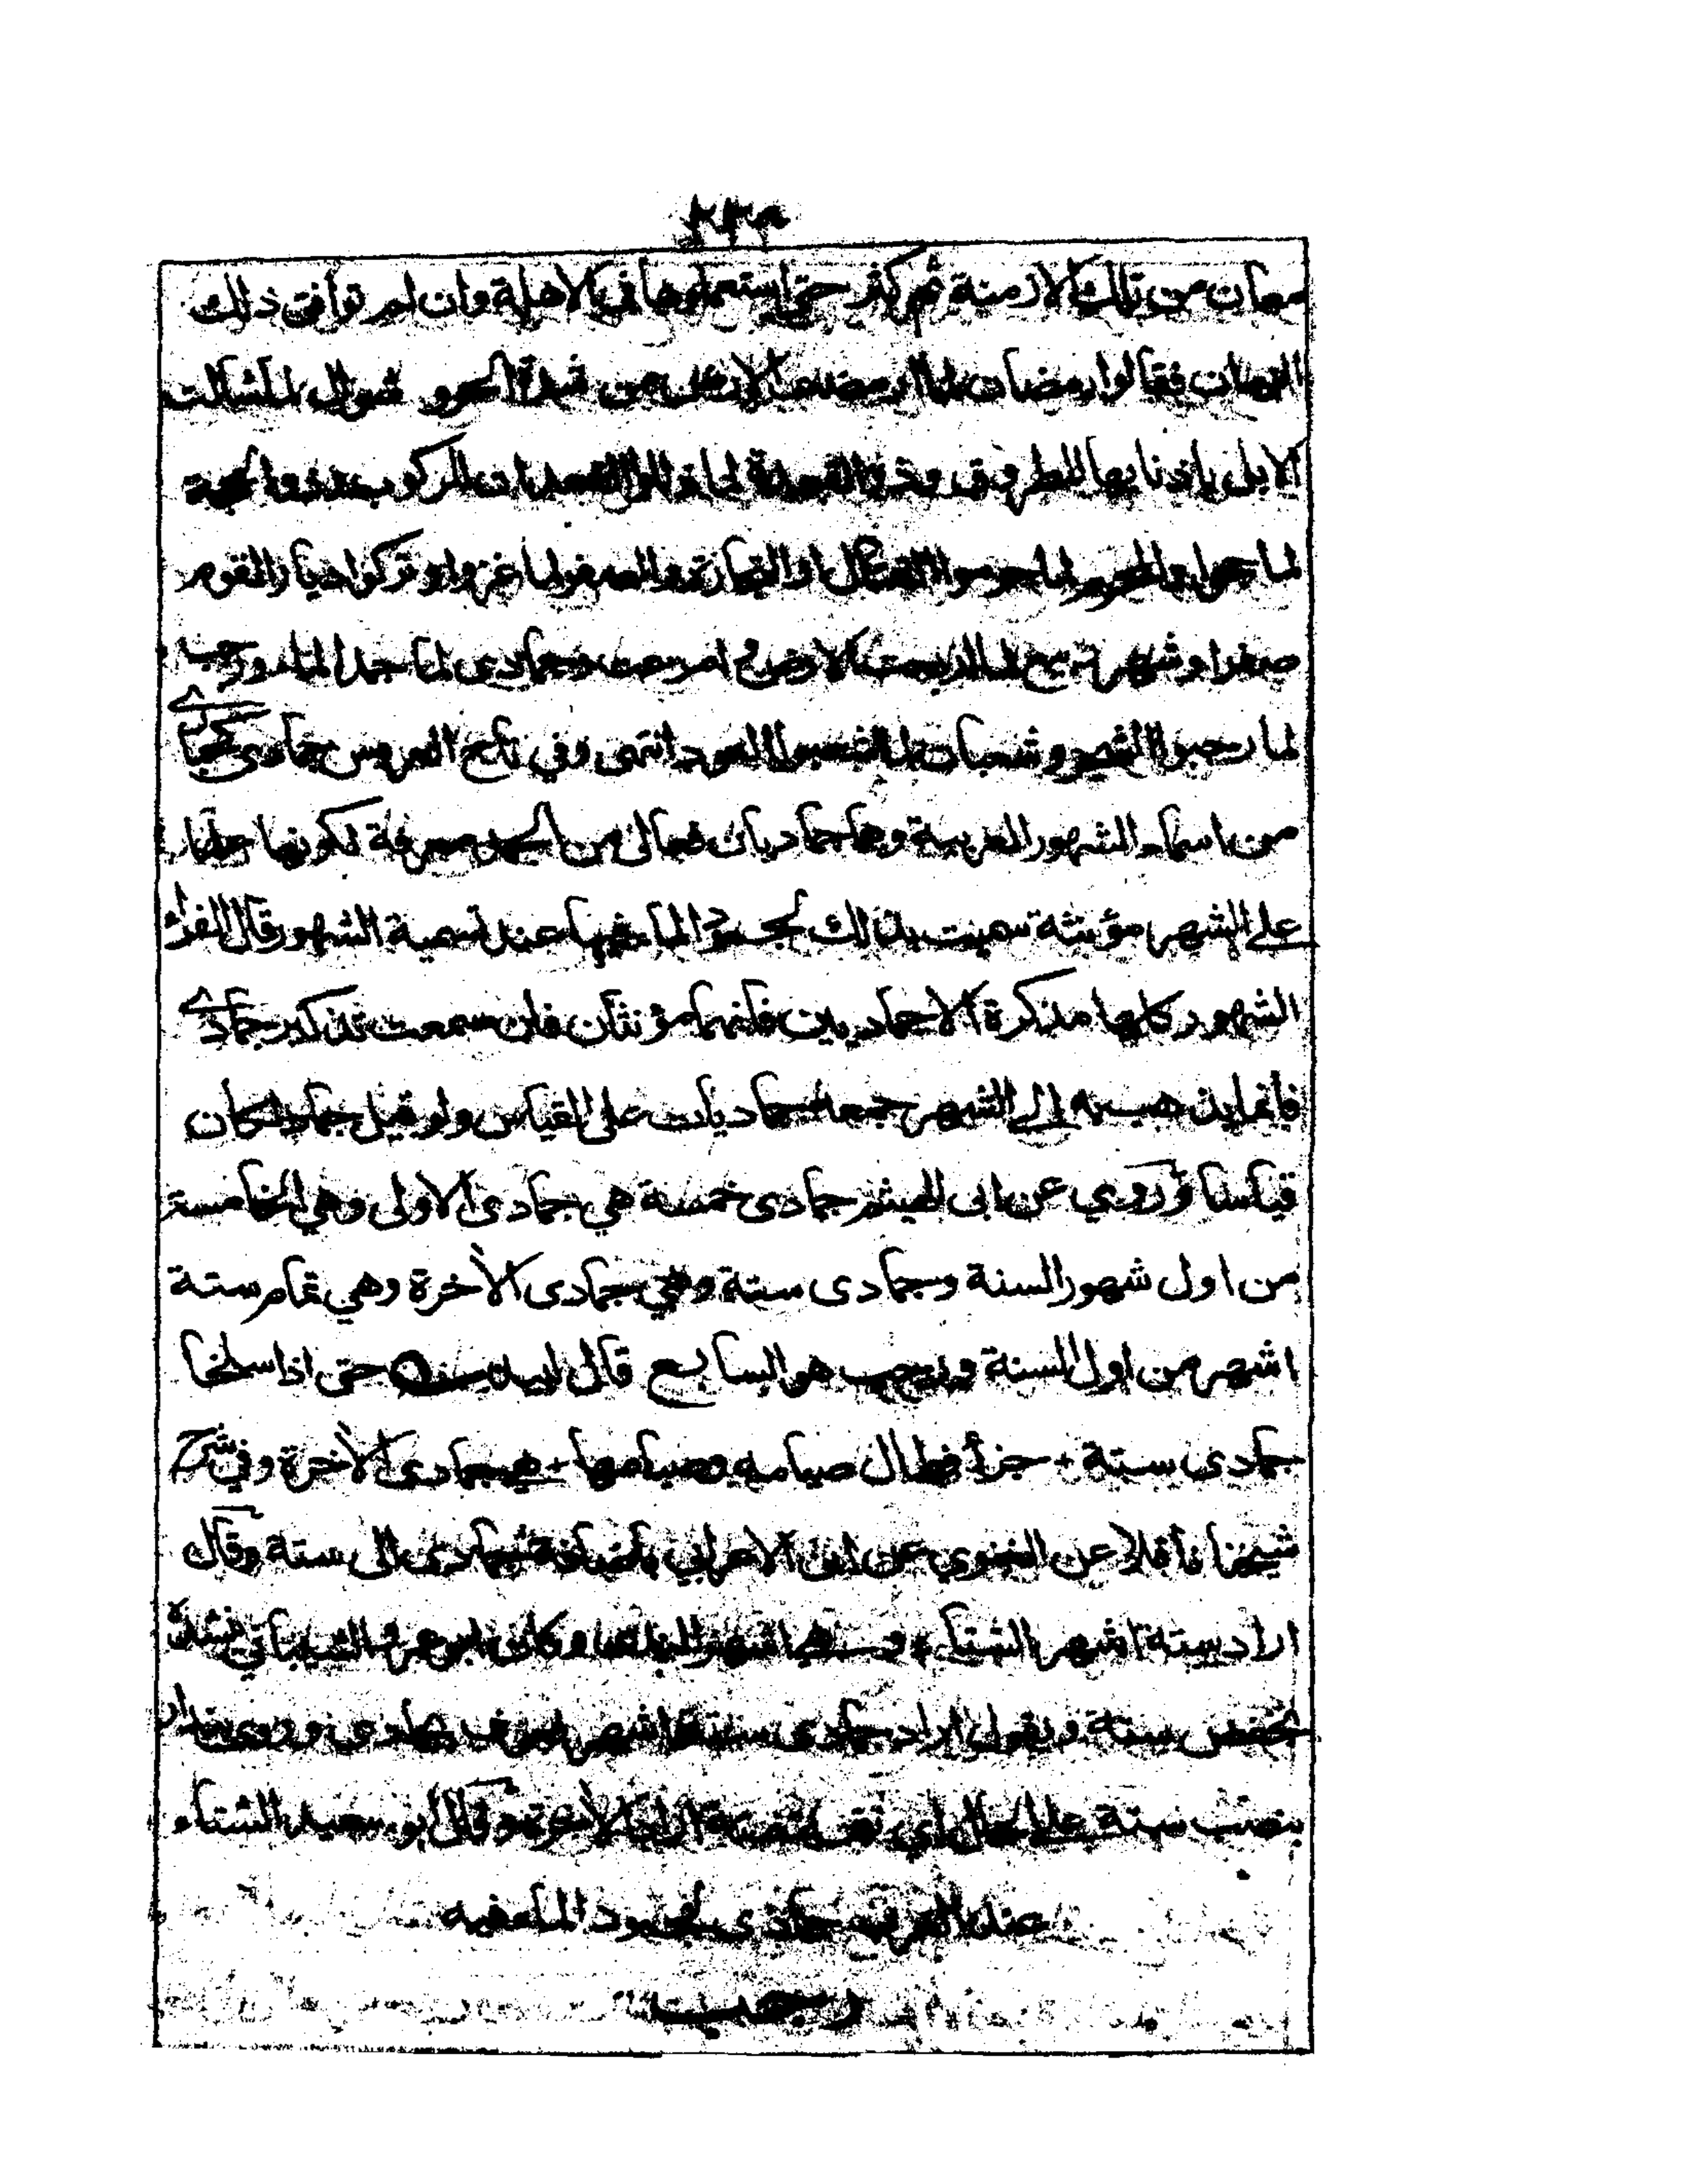 معان من تلك الازمنة ثم كثر حتى استعملوها في الاهلة وان لم توافق ذلك
الزمان فقالوا رمضان لما ارمضت الارض من شدة الحر و شوال لما شالت
الابل باذنابها للطروق وذو القعدة لما ذللوا القعدان للركوب وذو الحجة
لما حجوا والمحرم لما حرموا القتال او التجارة والصفر لما غزوا وتركوا ديار القوم
صفرا وشهر ربيع لما اربعت الارض و امرعت وجمادى لما جمد الماء ورجب
لما رجبوا الشجر وشعبان لما اشعبوا العود انتهى وفي تاج العروس جمادى كحبارى
من اسماء الشهور العربية وهما جماديان فعالى من الجمد معرفة لكونها علما
على الشهر مؤنثة سميت بذلك لجمود الماء فيها عند تسمية الشهور قال الفراء
الشهور كلها مذكرة الا جماديين فانهما مؤنثان فان سمعت تذكير جمادى
فانما يذهب به الى الشهر جمعه جماديات على القياس ولو قيل جماد لكان
قياسا وروي عن ابى الهيثم جمادى خمسة هي جمادى الاولى وهي الخامسة
من اول شهور السنة وجمادى ستة وهي جمادى الأخرة وهي تمام ستة
اشهر من اول السنة ورجب هو السابع قال لبيد حتى اذا سلخا
جمادى ستة + جزأ فطال صيامه وصيامها + هي جمادى الأخرة وفي شرح
شيخنا ناقلا عن الغنوي عن ابن الاعرابي باضافة جمادى الى ستة وقال
اراد ستة اشهر الشتاء و وكان ابو عمرو الشيباني ينشده
بخفض ستة ويقول اراد جمادى ستة اشهر جمادى وروي بندار
بنصب ستة على الحال اي تتمة ستة اراد الأخرة وقال ابو سعيد الشتاء
عند العرب جمادى لجمود الماء فيه
رجب